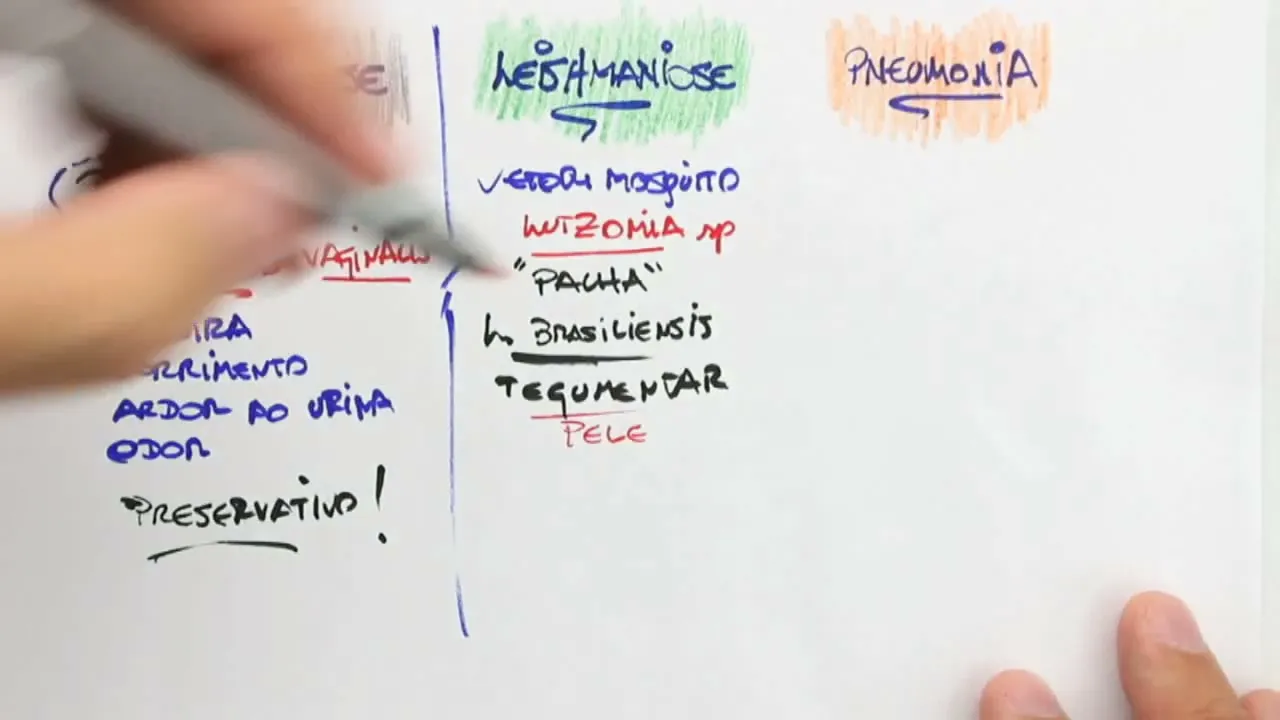 VAGINALIS
ORRIMENTO
ARDOR AO URINA
ODOR
PRESERVATIVO!
LEISHMANIOSE
VETOR: MOSQUITO
LUTZOMIA sp
"PALHA"
L. BRASILIENSIS
TEGUMENTAR
PELE
PNEUMONIA